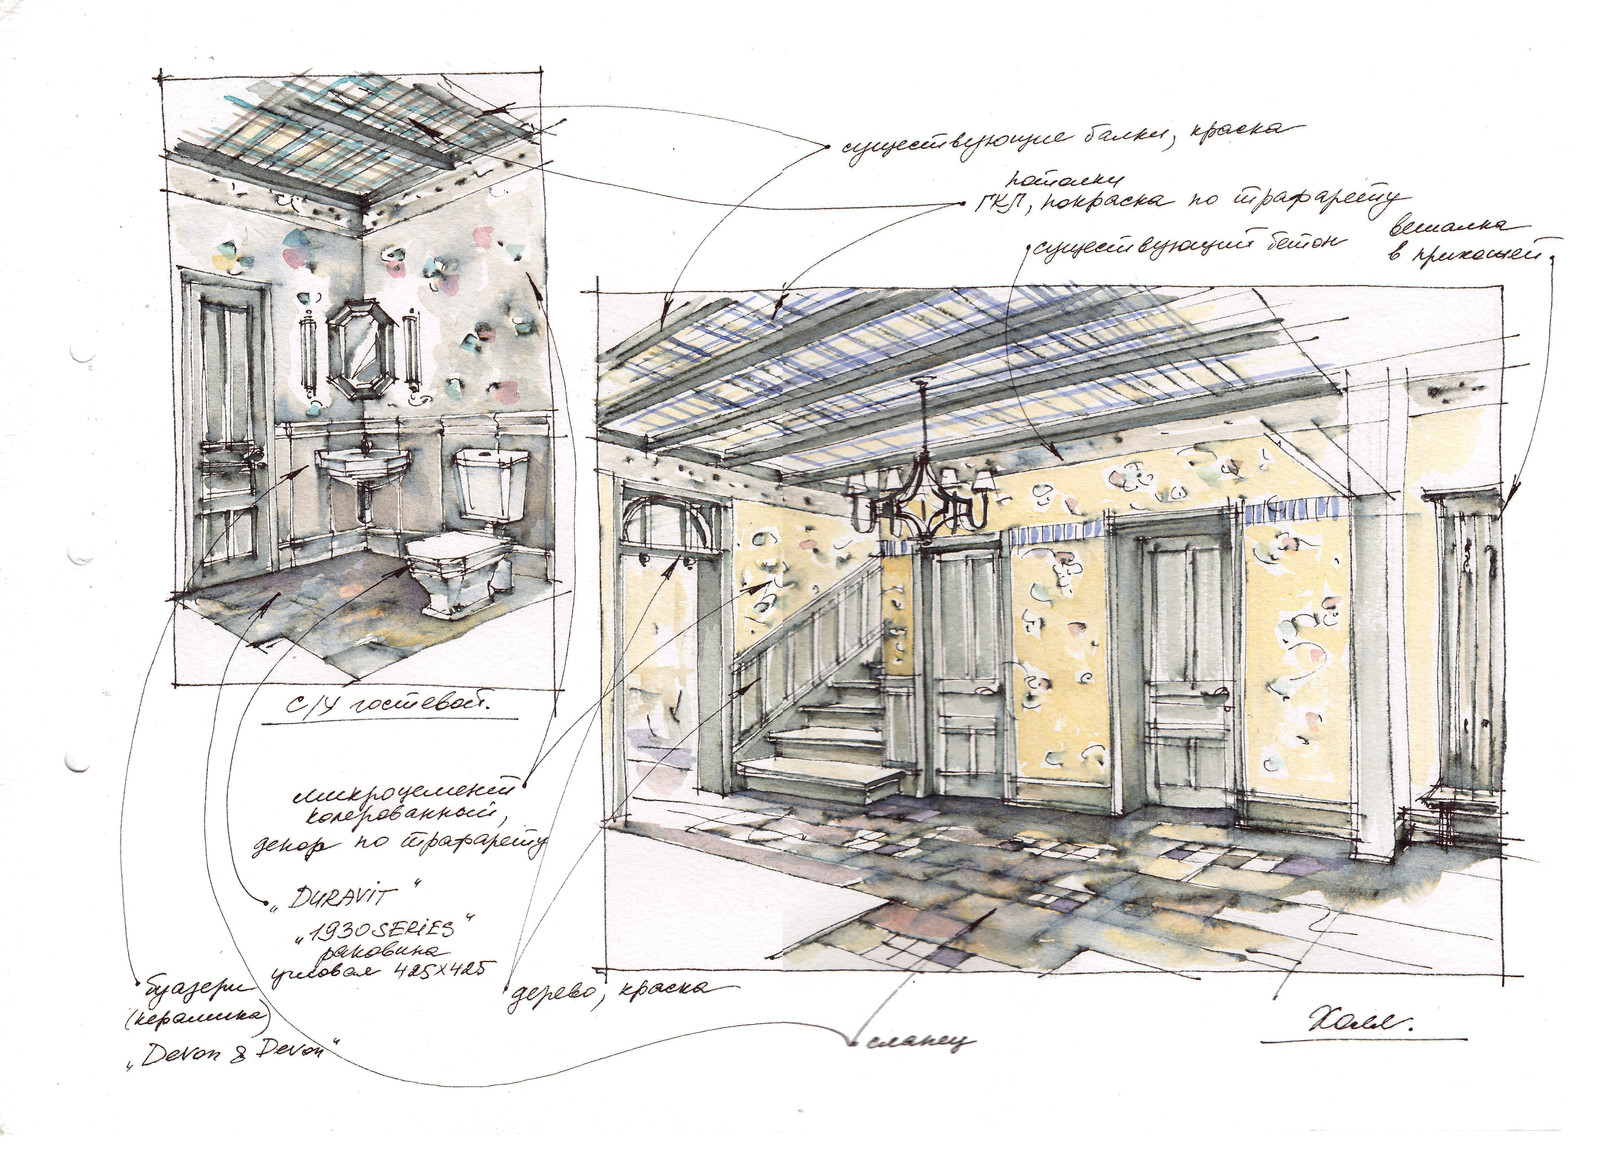 существующие балки, краска
потолки
ГКЛ, покраска по трафарету
существующий бетон
вешалка
в прихожей
С/У гостевой.
микроцемент
колерованный,
декор по трафарету
„DURAViT"
„1930SERiES"
раковина
угловая 425х425
буазери
(керамика)
„Devon & Devon"
дерево, краска
сланец
Холл.